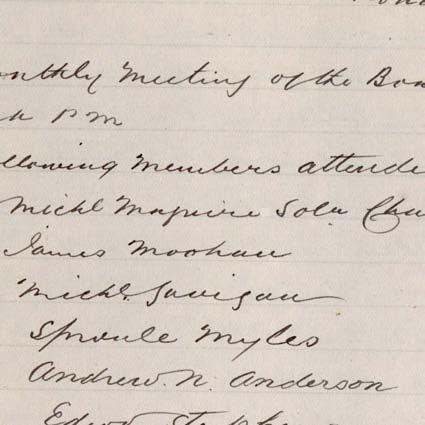 onthly Meeting of the Boa
P M
llowing Members attende
Michl Maguire Solr Cha
James Moohan
Michl. Gavigan
Sproule Myles
Andrew. N. Anderson
Edwd Steph